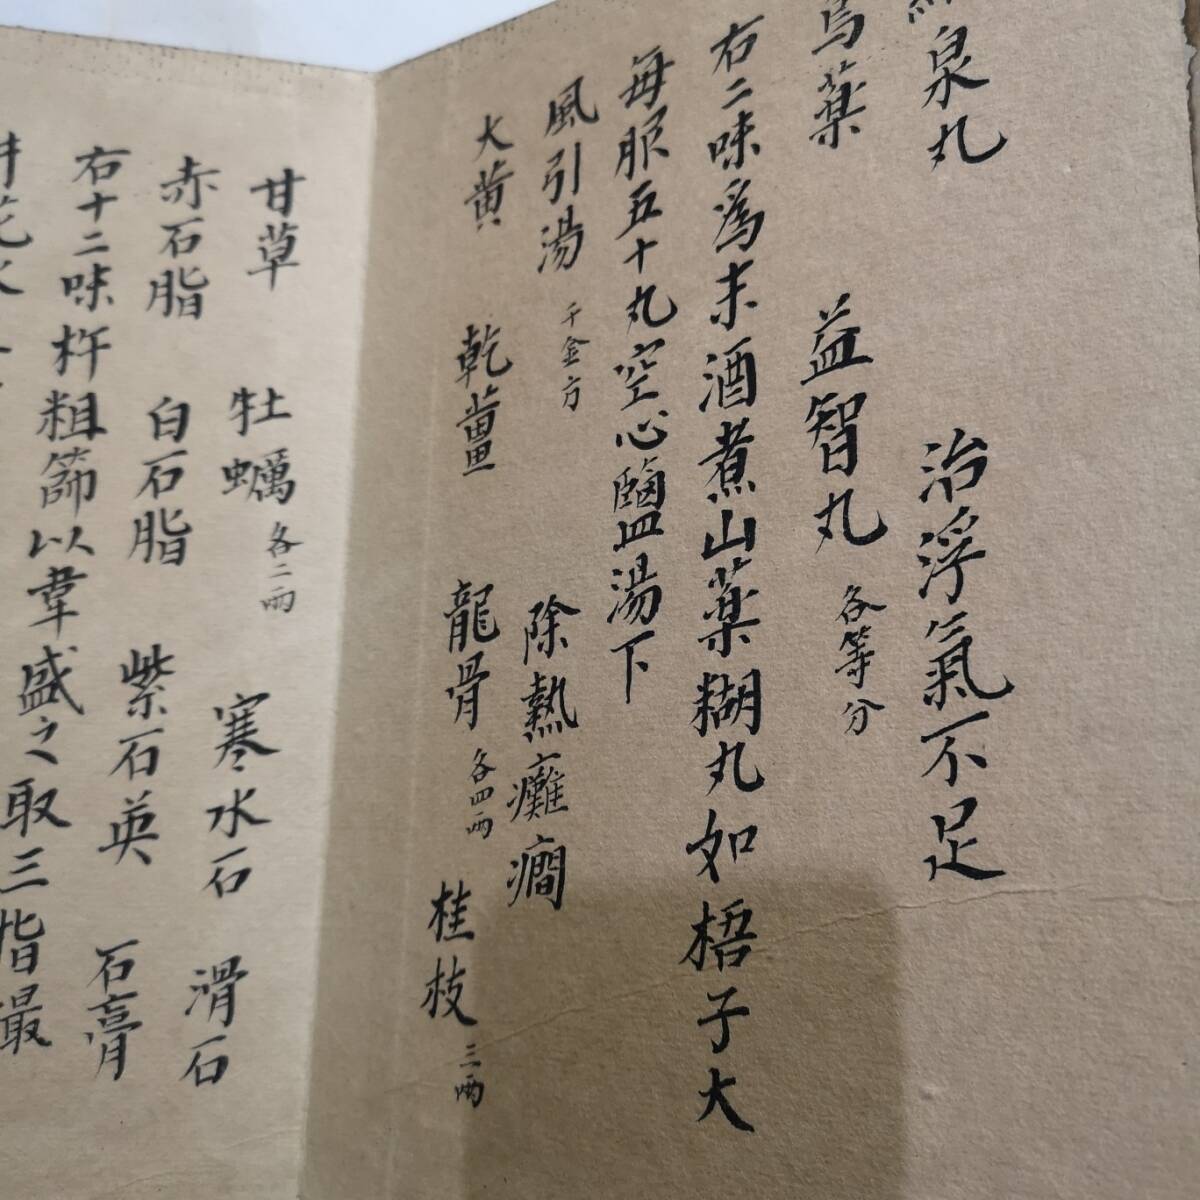 泉丸 治浮氣不足
烏藥 益智丸 各等分
右二味為末酒煮山藥糊丸如梧子大
每服五十丸空心鹽湯下
風引湯 千金方 除熱癱癎
大黃 乾薑 龍骨 各四兩 桂枝 三兩
甘草 牡蠣 各二兩 寒水石 滑石
赤石脂 白石脂 紫石英 石膏
右十二味杵粗篩以韋盛之取三指最
井花水